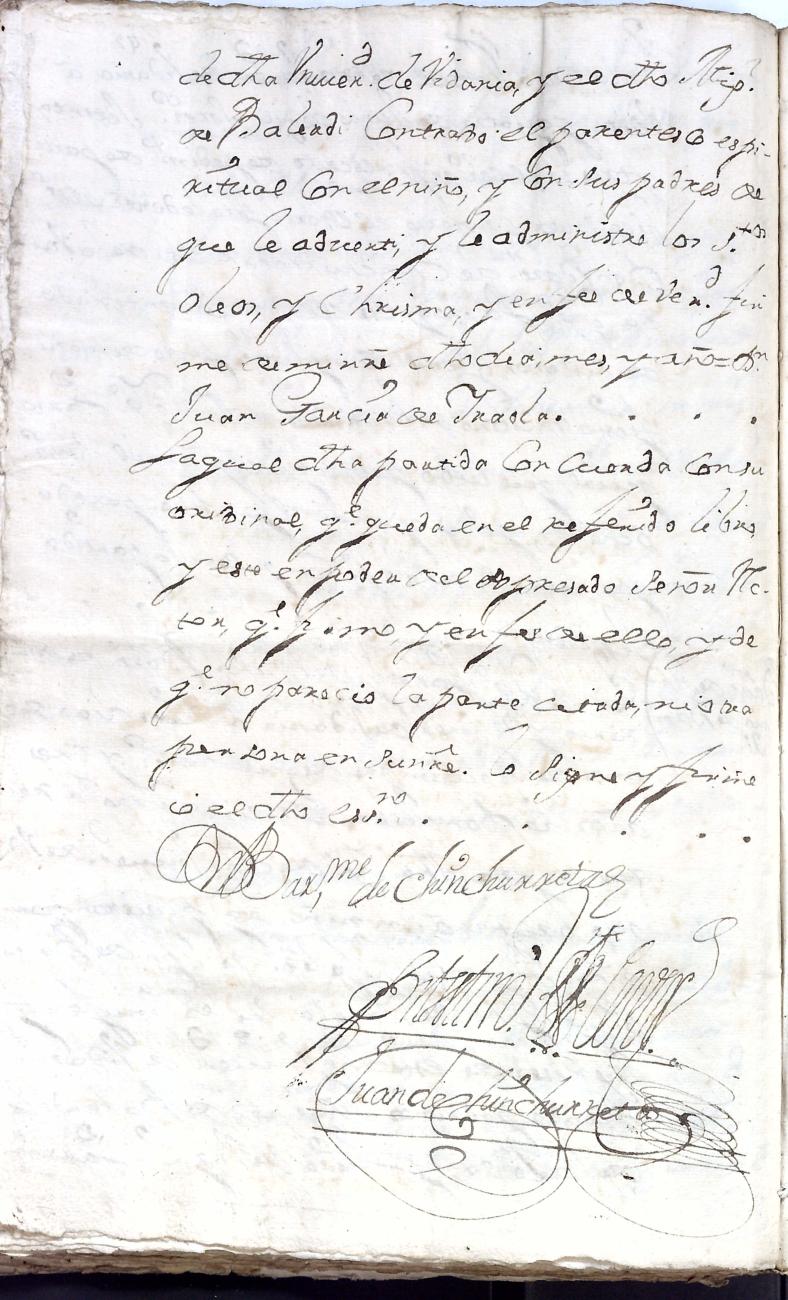 de dha Vniver.d de Vidania, y el dho Mig.l
de Balerdi Contrado el parentesco espi-
ritual Con el niño, y Con sus padres de
que le adverti, y le administre los S.tos
oleos, y Chrisma, y en fee de ver.d fir
me de mi nre dho dia, mes, y año= D.n
Juan Garcia de Yraola.
La qual dha partida Concuerda con su
original, q.e queda en el referido libro,
y este en poder del expresado Señor Rc-
tor, q.e firmo, y en fee de ello, y de
q.e no parecio la parte citada, ni otra
persona en su nre. lo Signe y firme
io el dho ess.no
D.n Bar.me de Chinchurreta
En testim.o de Verd.
Juan de Chinchurreta